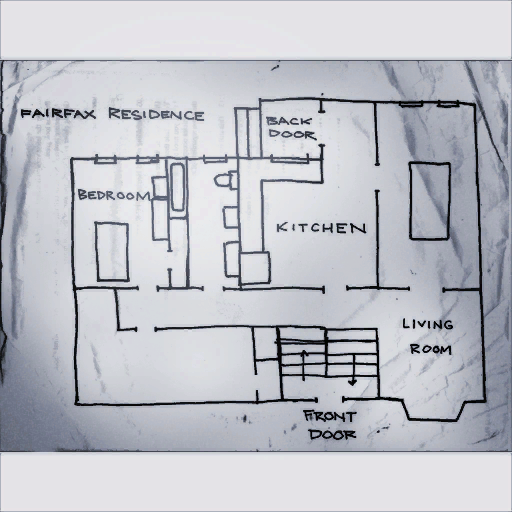 FAIRFAX RESIDENCE
BACK
DOOR
BEDROOM
KITCHEN
LIVING
ROOM
FRONT
DOOR